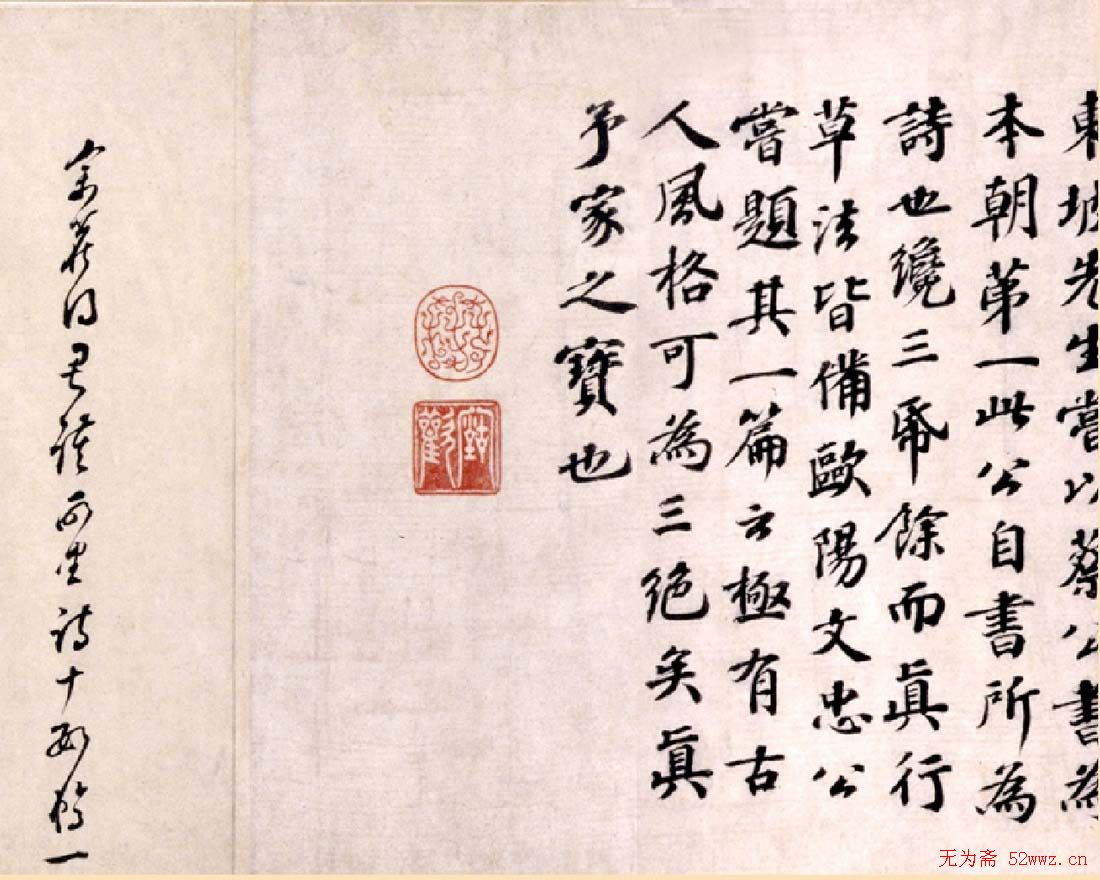 東坡先生嘗以蔡公書為
本朝苐一此公自書所為
詩也纔三帋餘而眞行
草法皆備歐陽文忠公
嘗題其一篇云極有古
人風格可為三絕矣眞
予家之寶也
得君謨詩十數一
无为斋 52wwz.cn